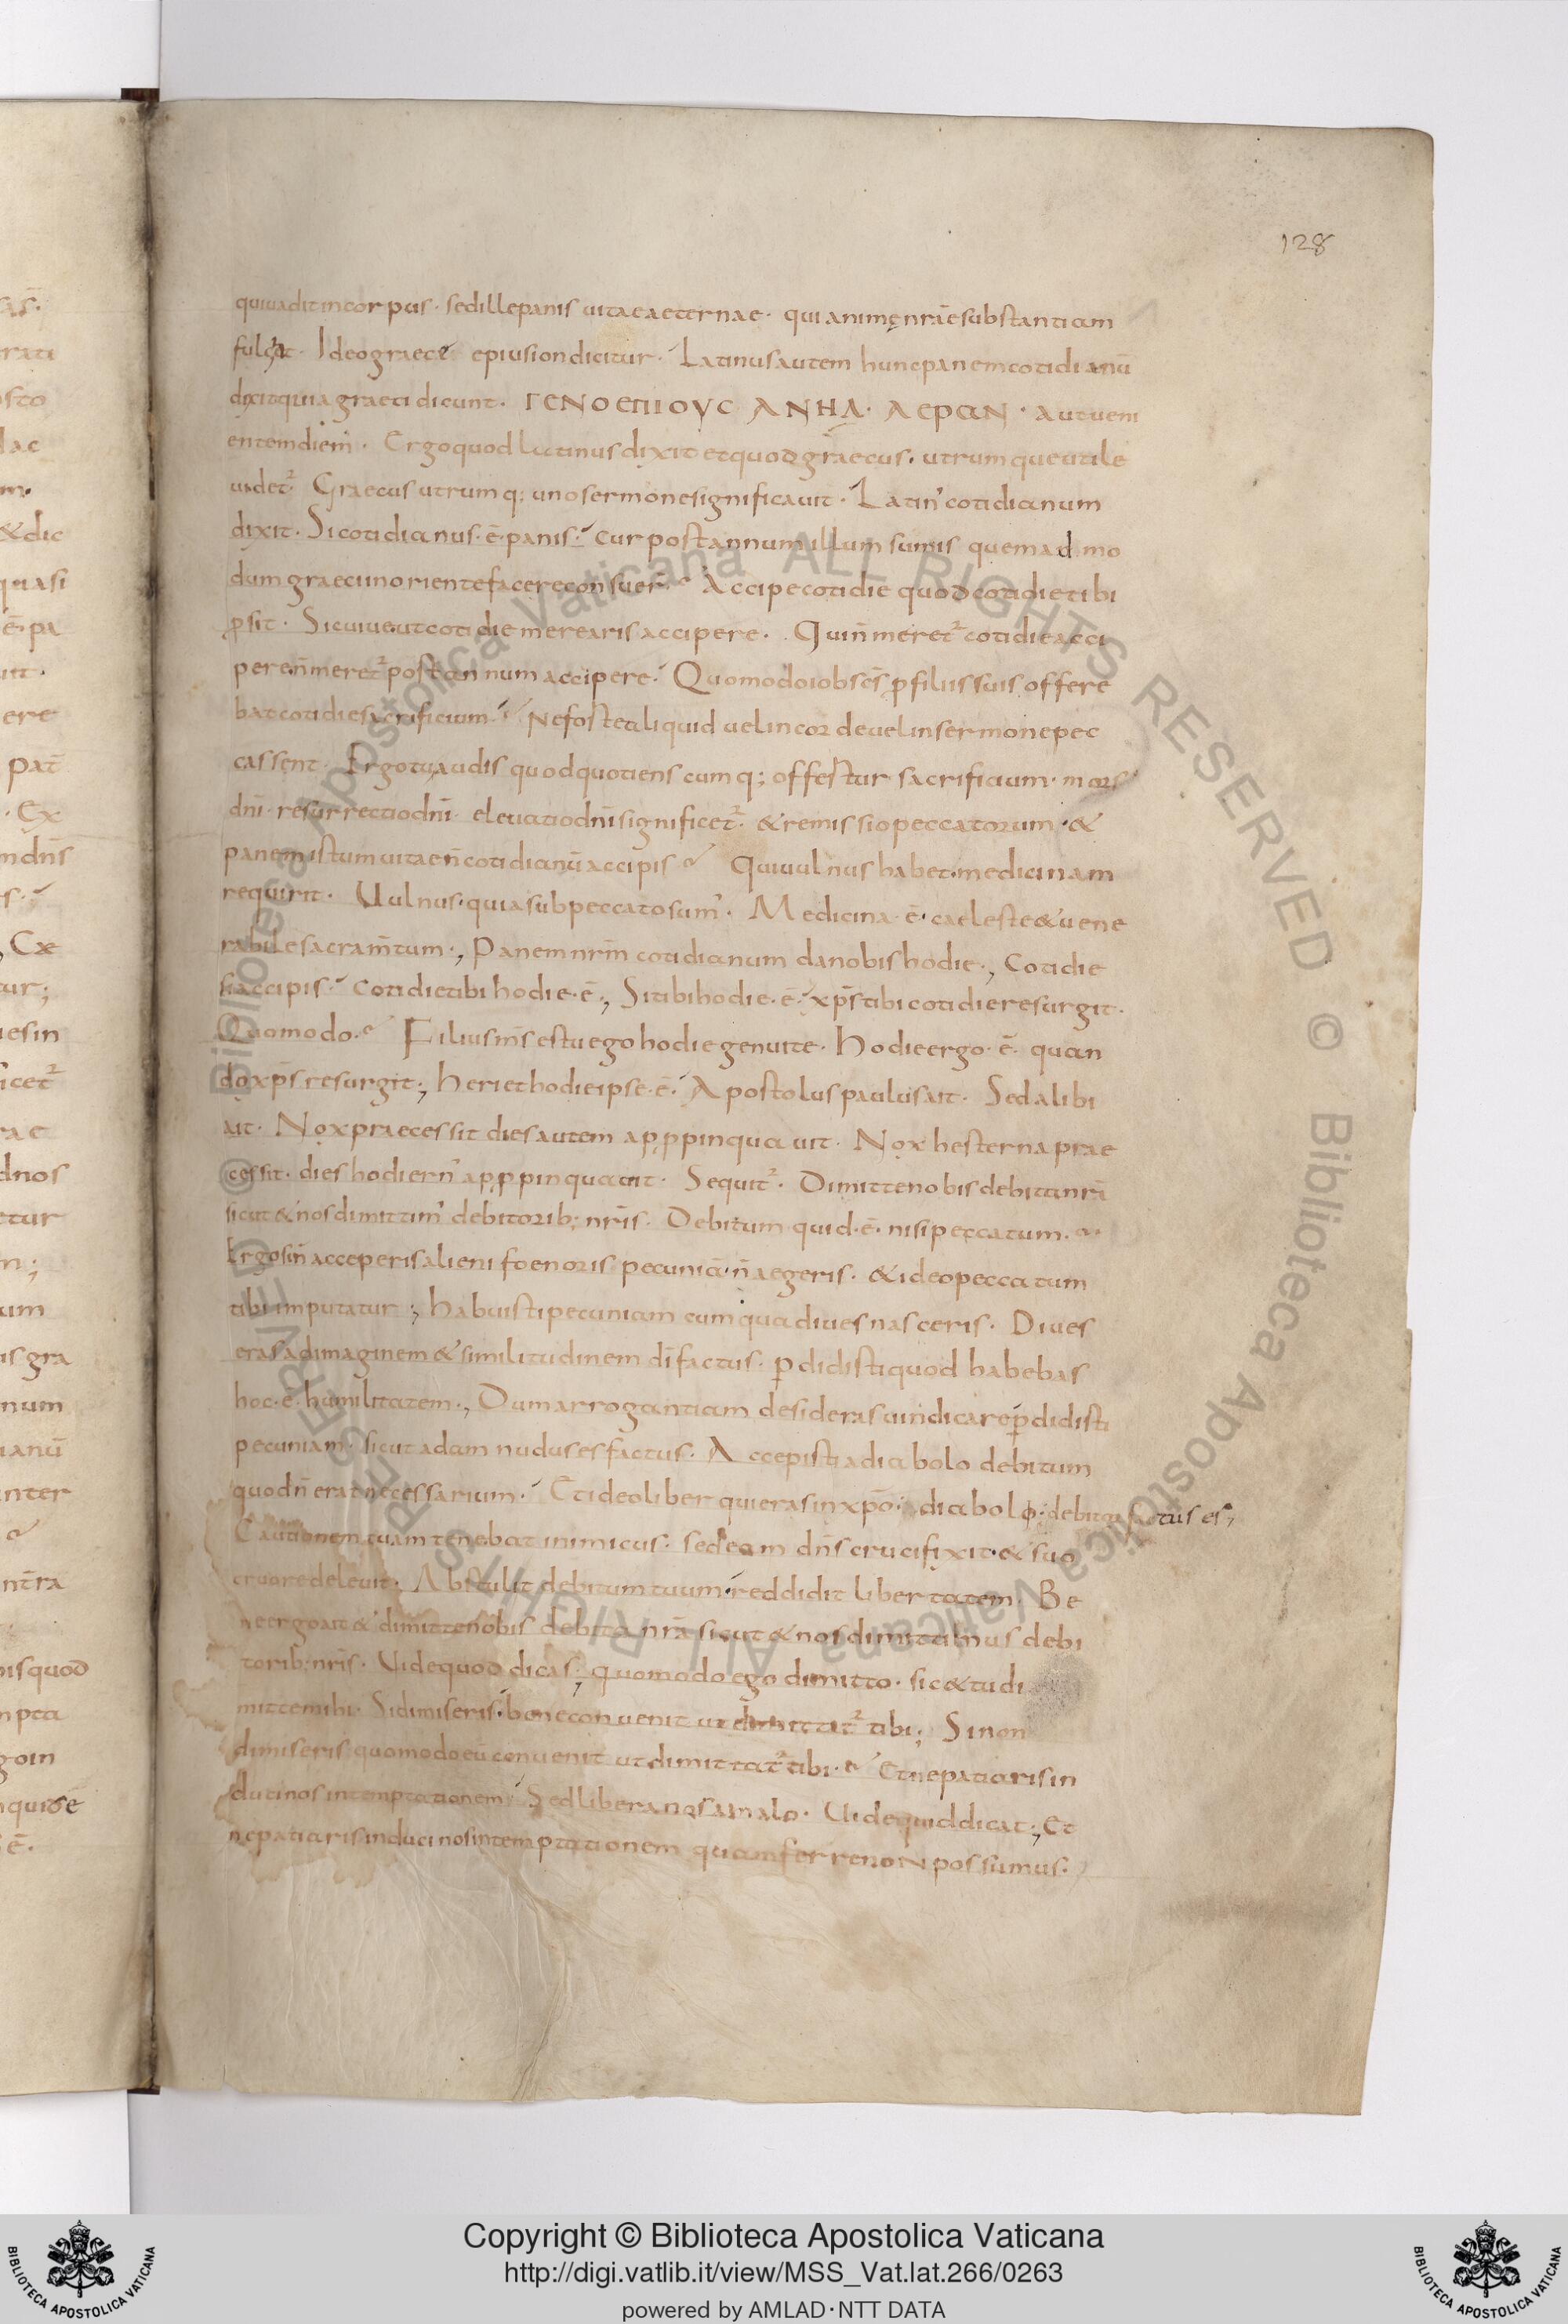 128
quiuadit incorpus · sedille panis uitae aeternae · qui animę nrāe substantiam
fulcit · Ideo graece epiusion dicitur · Latinus autem hunc panem cotidianū
dixit quia graeci dicunt · ΓΕΝΟΕΠΙΟΥC ΑΝΗΛ · ΛΕΡΑΝ · aut ueni
entem diem · Ergo quod latinus dixit et quod graecus · utrumque utile
uidet · Graecus utrumq; uno sermone significauit · Latin' cotidianum
dixit · Si cotidianus · ē · panis · cur post annum illum sumis quemadmo
dum graeci in oriente facere consuer̄ Accipe cotidie quod cotidie tibi
psit · Sic uiue ut cotidie merearis accipere · Qui n̄ meret cotidie acci
pere n̄ meret post annum accipere Quomodo iob scs̄ p filiis suis offere
bat cotidie sacrificium · Ne forte aliquid uel in corde uel in sermone pec
cassent · Ergo tu audis quod quotienscumq; offertur sacrificium · mors
dn̄i · resurrectio dn̄i · eleuatio dn̄i significet · & remissio peccatorum · &
panem istum uitae n̄ cotidianū accipis Qui uulnus habet · medicinam
requirit · Uulnus · quia sub peccato sum' · Medicina · ē · caeleste & uene
rabile sacram̄tum ·, Panem nrm̄ cotidianum da nobis hodie ·, Cotidie
si accipis · cotidie tibi hodie · ē ·, Si tibi hodie · ē · xp̄s tibi cotidie resurgit ·
Quomodo · Filius ms̄ es tu ego hodie genui te · Hodie ergo · ē · quan
do xp̄s resurgit ·, heri et hodie ipse · ē · Apostolus paulus ait · Sed alibi
ait · Nox praecessit dies autem appinquauit · Nox hesterna prae
cessit · dies hodiern' appinquauit · Sequit · Dimitte nobis debita nrā
sicut & nos dimittim' debitorib; nrīs · Debitum quid · ē · nisi peccatum ·
Ergo si n̄ acceperis alieni foenoris pecuniā · n̄ aegeris · & ideo peccatum
tibi imputatur ·, habuisti pecuniam cum qua diues nasceris · Diues
eras ad imaginem & similitudinem dī factus · pdidisti quod habebas
hoc · ē · humilitatem ·, Dum arrogantiam desideras uindicare pdidisti
pecuniam · sicut adam nudus es factus · Accepisti a diabolo debitum
quod n̄ erat necessarium · Et ideo liber qui eras in xpō · diabolo debitor factus es ·,
Cautionem tuam tenebat inimicus · sed eam dn̄s crucifixit · & suo
cruore deleuit · Abstulit debitum tuum · reddidit libertatem · Be
ne ergo ait & dimitte nobis debita nrā sicut & nos dimittimus debi
torib; nrīs · Uide quod dicas ·, quomodo ego dimitto · sic & tu di
mitte mihi · Si dimiseris · bene conuenit ut dimittat tibi ·, Si non
dimiseris quomodo eū conuenit ut dimittat tibi · Et ne patiaris in
duci nos in temptationem Sed libera nos a malo · Uide quid dicat ·, Et
ne patiaris induci nos in temptationem quam ferre non possumus ·
Copyright © Biblioteca Apostolica Vaticana
http://digi.vatlib.it/view/MSS_Vat.lat.266/0263
powered by AMLAD·NTT DATA